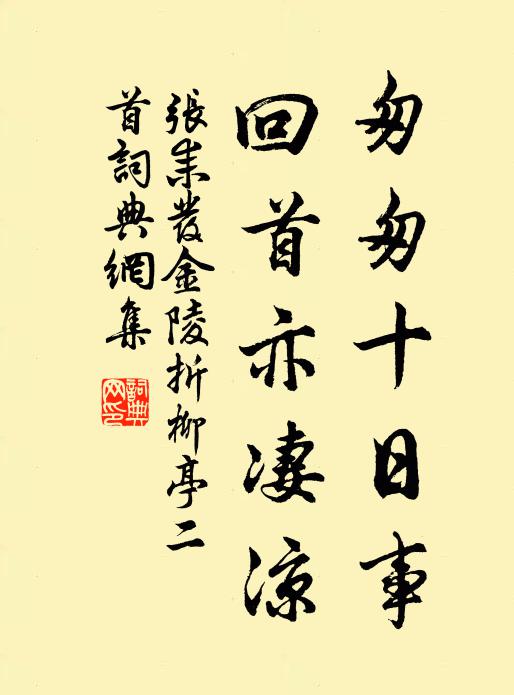 匆匆十日事
回首亦凄涼
張耒發金陵折柳亭二
首詞典網集
詞典
网印